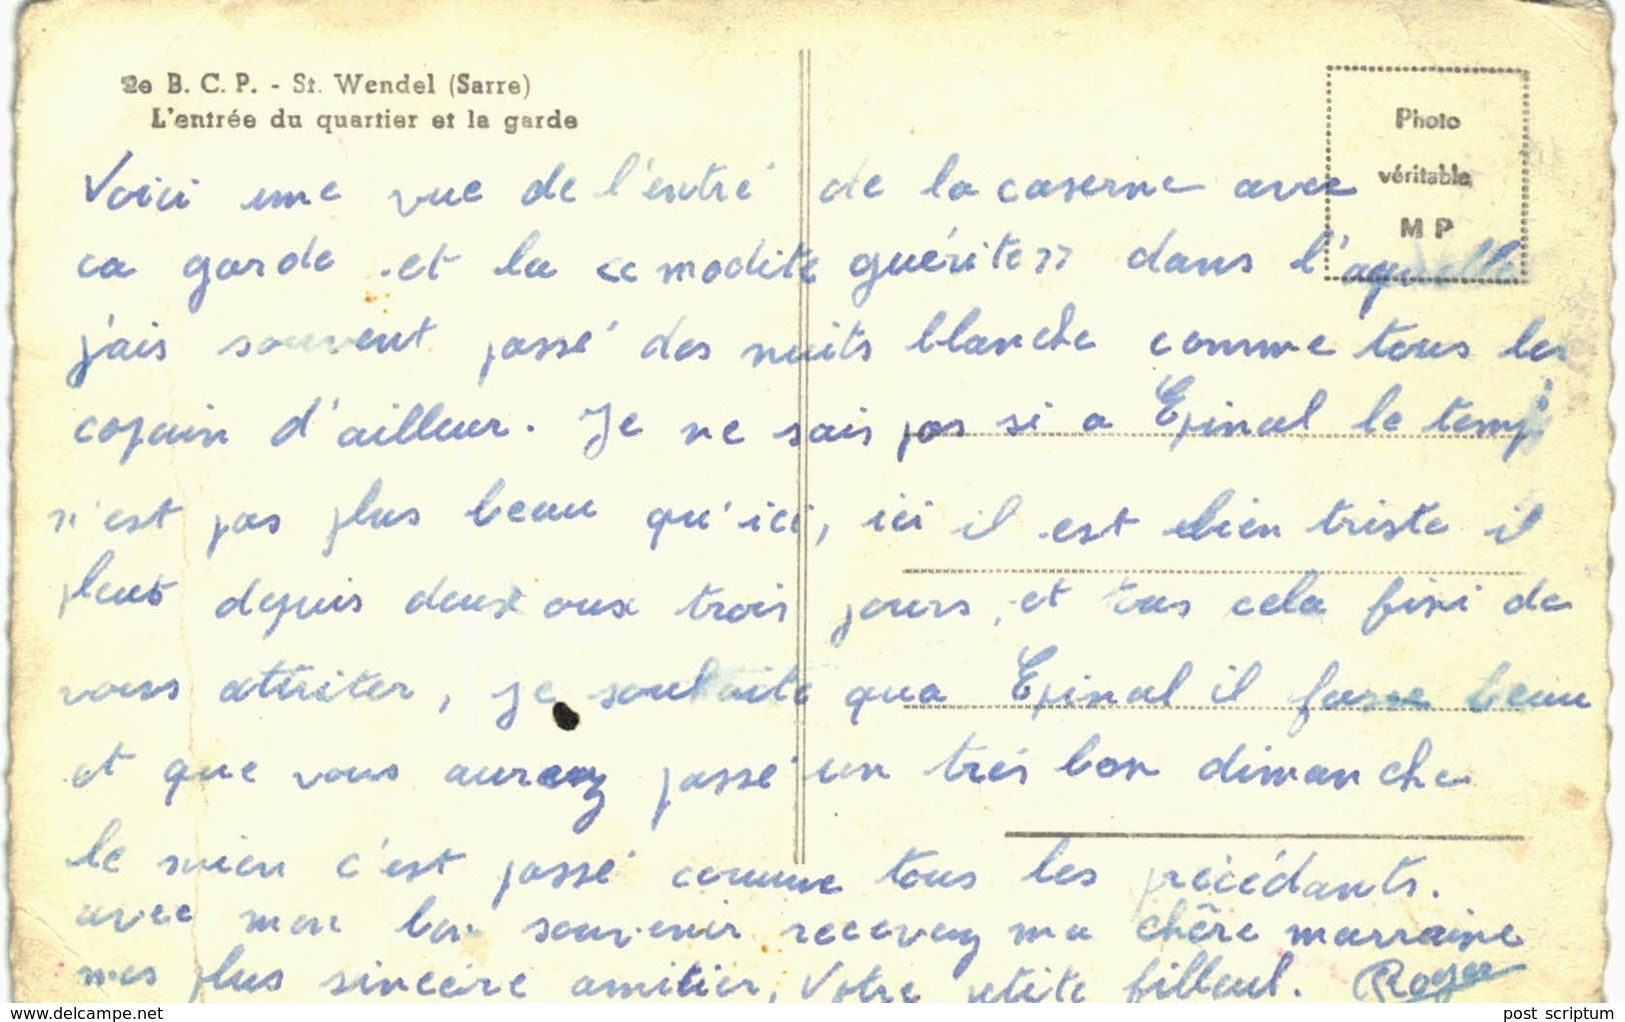 2e B. C. P. - St. Wendel (Sarre)
L'entrée du quartier et la garde
Photo
véritable
M P
Voici une vue de l'entré de la caserne avec
ca garde et la << modite guérite >> dans l'aquelle
j'ais souvent passé des nuits blanche comme tous les
copain d'ailleur. Je ne sais pas si a Epinal le temp
n'est pas plus beau qu'ici, ici il est bien triste il
pleut depuis deux oux trois jours, et tous cela fini de
vous attrister, je souhaite qua Epinal il fasse beau
et que vous aurez passé un très bon dimanche
le mien c'est passé comme tous les précédants.
avec mon bon souvenir recevez ma chêre marraine
mes plus sincère amitier, Votre petite filleul. Roger
www.delcampe.net
post scriptum